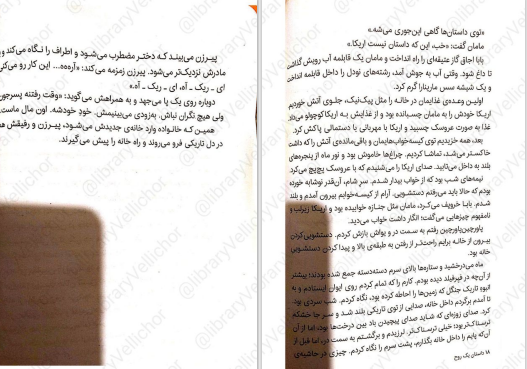 «توی داستان‌ها گاهی این‌جوری می‌شه.»
مامان گفت: «خب، این که داستان نیست اریکا.»
بابا اجاق گاز عتیقه‌ای را راه انداخت و مامان یک قابلمه آب رویش گذاشت
تا داغ شود. وقتی آب به جوش آمد، رشته‌های نودل را داخل قابلمه انداخت
و یک شیشه سس مارینارا گرم کرد.
اولین وعده‌ی غذایمان در خانه را مثل پیک‌نیک، جلوی آتش خوردیم
اریکا خودش را به مامان چسبانده بود و از غذایش به اریکاکوچولو می‌داد.
غذا به صورت عروسک چسبید و اریکا با مهربانی با دستمالی پاکش کرد.
بعد، همه خزیدیم توی کیسه‌خواب‌هایمان و باقی‌مانده‌ی آتش را که داشت
خاکستر می‌شد، تماشا کردیم. چراغ‌ها خاموش بودند و نور ماه از پنجره‌های
بلند به داخل می‌تابید. صدای اریکا را می‌شنیدم که با عروسک پچ‌پچ می‌کرد
نیمه‌های شب بود که از خواب بیدار شدم. سر شام، آن‌قدر نوشابه خورده
بودم که حالا باید می‌رفتم دستشویی. آرام از کیسه‌خوابم بیرون آمدم و بلند
شدم. بابا خروپف می‌کرد، مامان مثل جنازه خوابیده بود و اریکا زیرلب و
نامفهوم چیزهایی می‌گفت؛ انگار داشت خواب می‌دید.
پاورچین‌پاورچین رفتم به سمت در و یواش بازش کردم. دستشویی‌کردن
بیرون از خانه برایم راحت‌تر از رفتن به طبقه‌ی بالا و پیدا کردن دستشویی
خانه بود.
ماه می‌درخشید و ستاره‌ها بالای سرم دسته‌دسته جمع شده بودند؛ بیشتر
از آن‌چه در فیرفیلد دیده بودم. کارم را که تمام کردم روی ایوان ایستادم و به
انبوه تاریک جنگل که زمین‌ها را احاطه کرده بود، نگاه کردم. شب سردی بود.
تا آمدم برگردم داخل خانه، صدایی از توی تاریکی بلند شد و سر جا خشکم
کرد. صدای زوزه‌ای که شاید صدای پیچیدن باد بین درخت‌ها بود، اما از آن
ترسناک‌تر بود؛ خیلی ترسناک‌تر. لرزیدم و برگشتم به سمت در، اما قبل از
آن‌که پایم را داخل خانه بگذارم، پشت سرم را نگاه کردم. چیزی در حاشیه‌ی
۱۸ داستان یک روح
پیرزن می‌بیند که دختر مضطرب می‌شود و اطراف را نگاه می‌کند و
مادرش نزدیک‌تر می‌شود. پیرزن زمزمه می‌کند: «آره‌ه‌ه... این کار رو می‌کنی
ای - ریک - آه، ای - ریک - آه.»
دوباره روی یک پا می‌جهد و به همراهش می‌گوید: «وقت رفتنه پسرجون
ولی هیچ نگران نباش. به‌زودی می‌بینیمش. خودِ خودشه. اون مال ماست.
همین که خانواده وارد خانه‌ی جدیدش می‌شود، پیرزن و رفیقش
در دل تاریکی فرو می‌روند و راه خانه را پیش می‌گیرند.